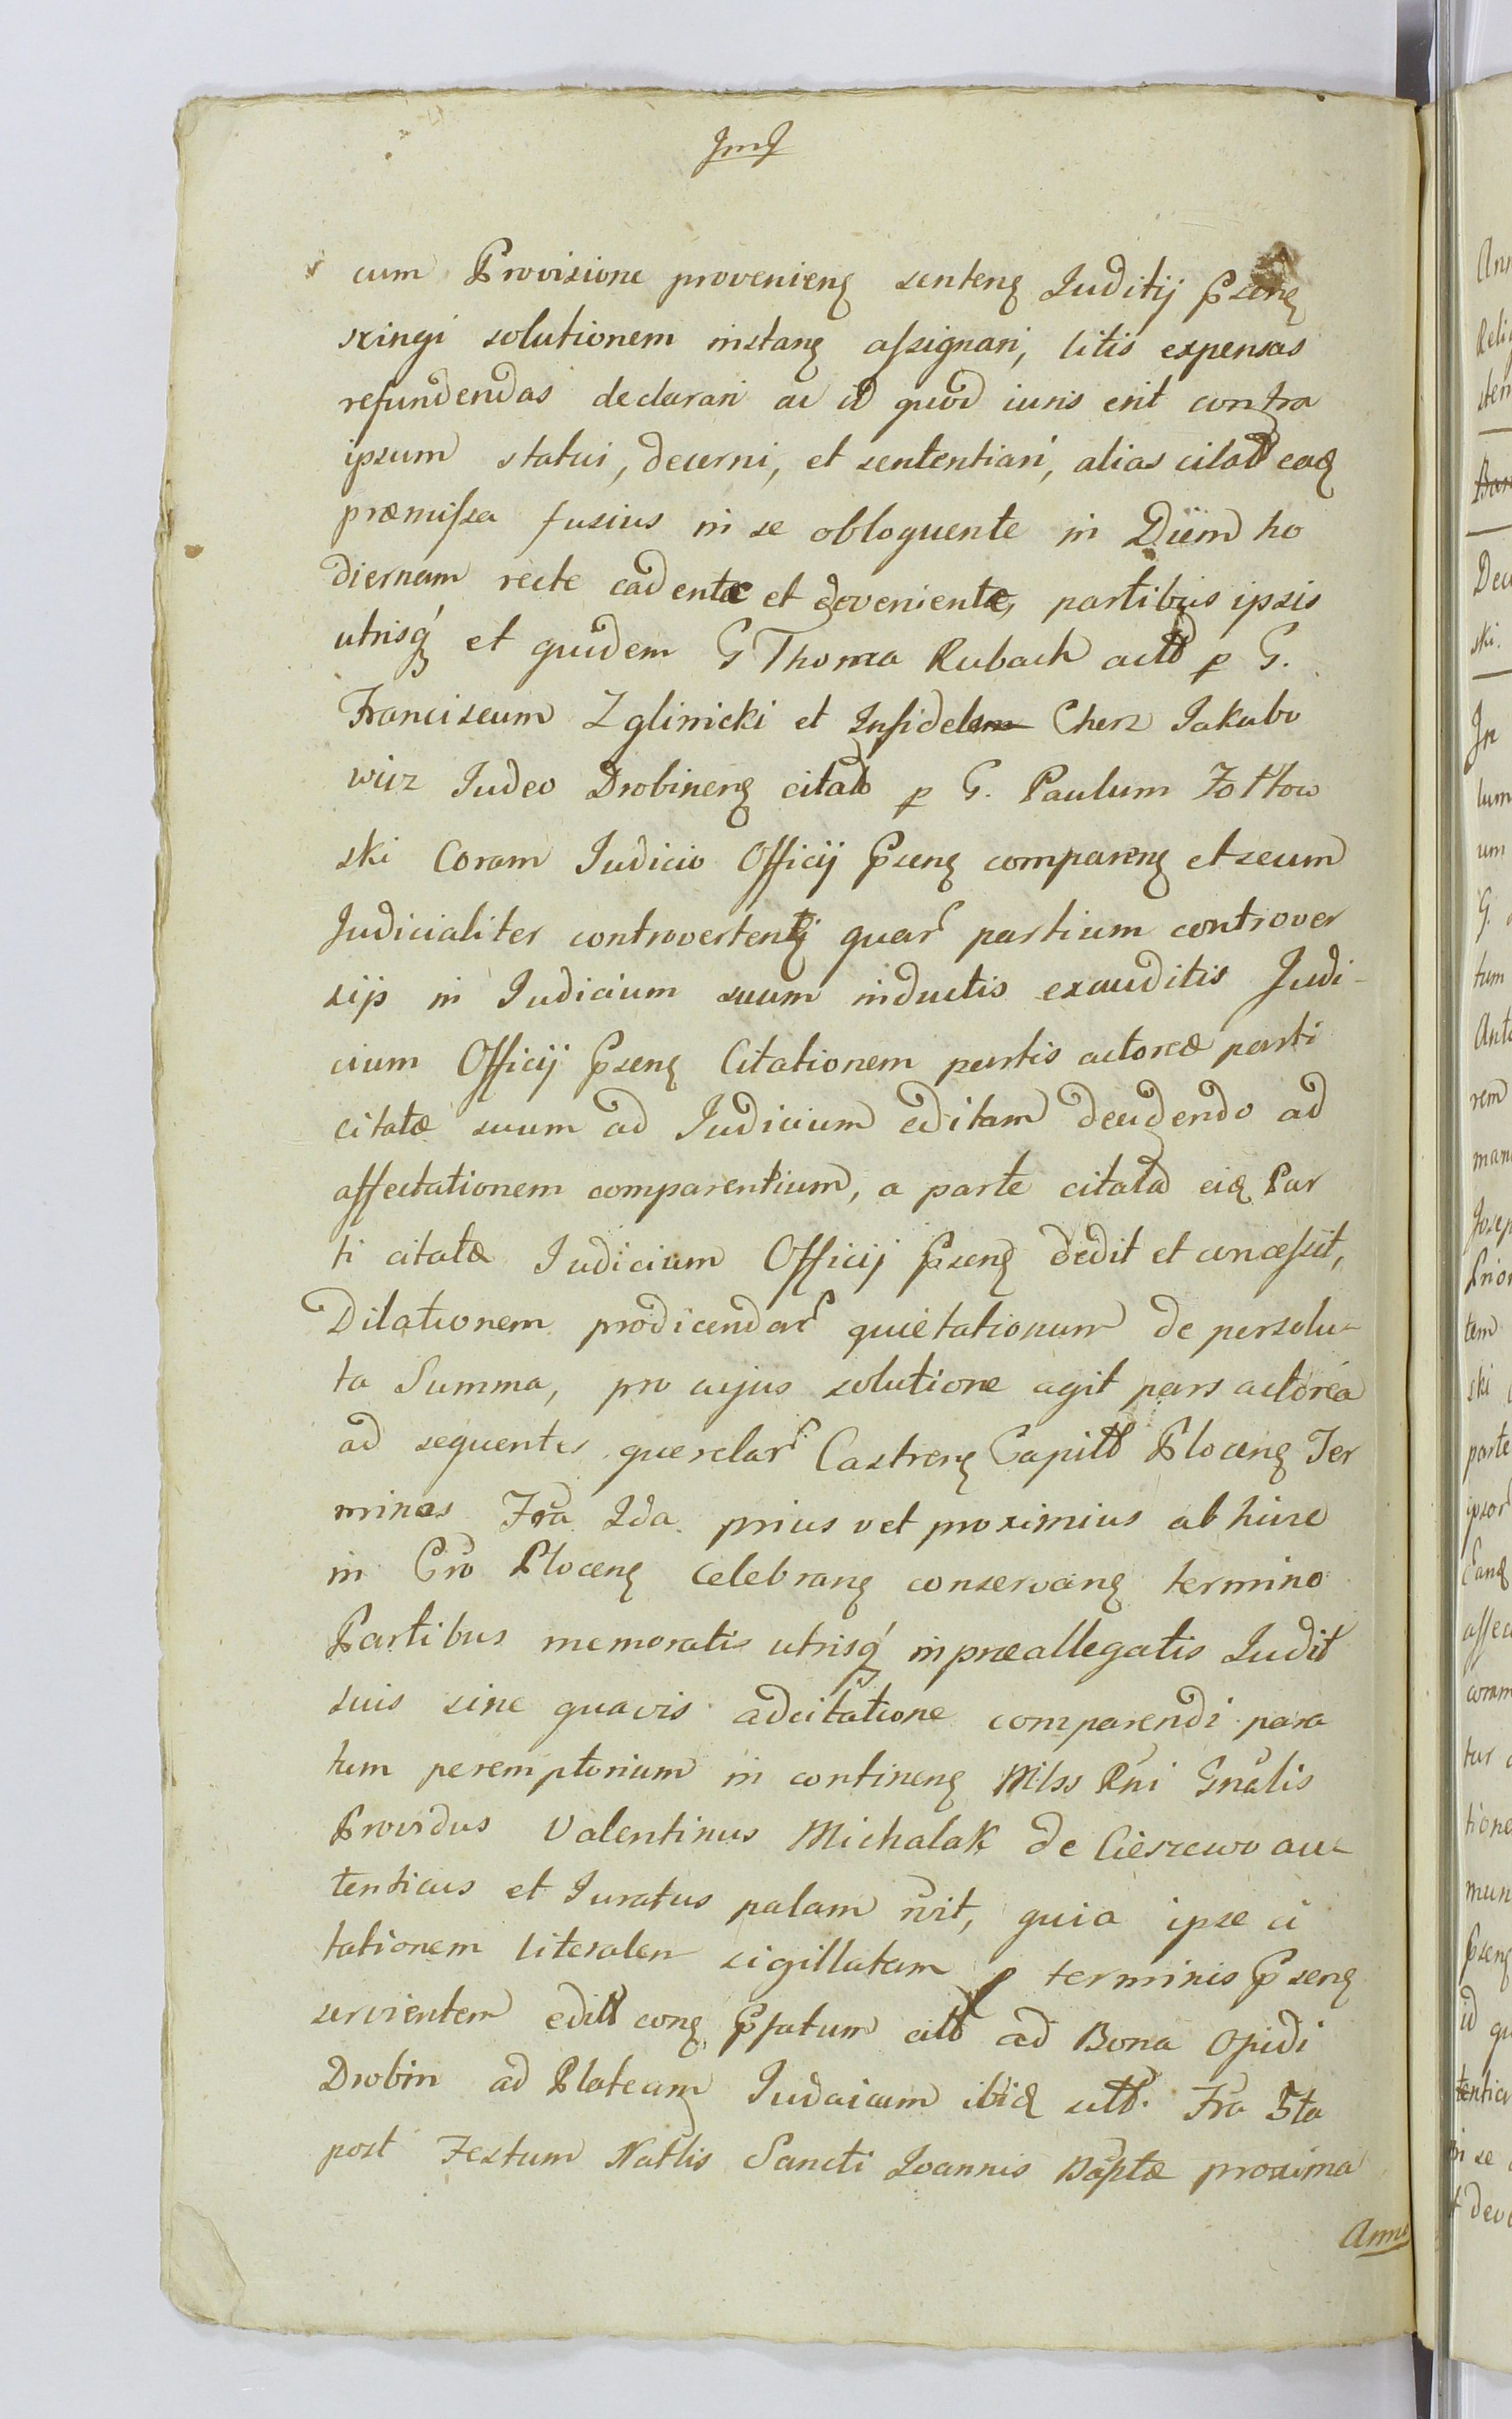 cum Provisione provenieng senteng Juditij Pseng
stringi solutionem instang assignari, litis expensas
refundendas declarari ac id quod iuris erit contra
ipsum statui, decerni, et sententiari, alias citatt eaq
præmissa fusius in se obloquente in Diem ho
diernam recte cadente et deveniente, partibus ipsis
utrisq́ et quidem G Thoma Rubach actt p G.
Franciscum Zglinicki et Infidelem Cherz Jakubo
wicz Judeo Drobineng citatt p G. Paulum Żołtow
ski Coram Judicio Officij Pseng compareng et secum
Judicialiter controverteng quar partium controver
sijs in Judicium suum inductis exauditis Judi-
cium Officij Pseng Citationem partis actoreæ parti
citatæ suum ad Judicium editam decidendo ad
affectationem comparentium, a parte citata eiq Par
ti citatæ Judicium Officij Pseng dedit et concessit,
Dilationem prodicendar quietationum de persolu-
ta Summa, pro cujus solutione agit pars actorea
ad sequentes querelar Castreng Capitt Ploceng Ter
minos Fra 2da prius vel proximius ab hinc
in Cro Ploceng celebrang conservang termino
Partibus memoratis utrisq́ in præallegatis Judit
suis sine quavis adcitatione comparendi para
tum peremptorium in contineng Mlss Rni Gnalis
Providus Valentinus Michalak de Cieszewo au-
tenticus et Juratus palam rvit, quia ipse ci
tationem literalem sigillatam p terminis Pseng
servientem editt cong Pfatum citt ad Bona Opidi
Drobin ad Plateam Judaicam ibiq sitt. Fra 5ta
post Festum Natlis Sancti Joannis Baptæ proxima
Anno